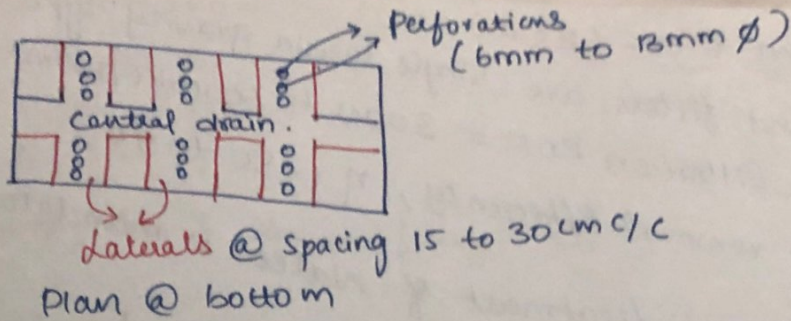 Perforations
(6mm to 13mm ϕ)
Central drain.
Laterals @ spacing 15 to 30cm c/c
Plan @ bottom